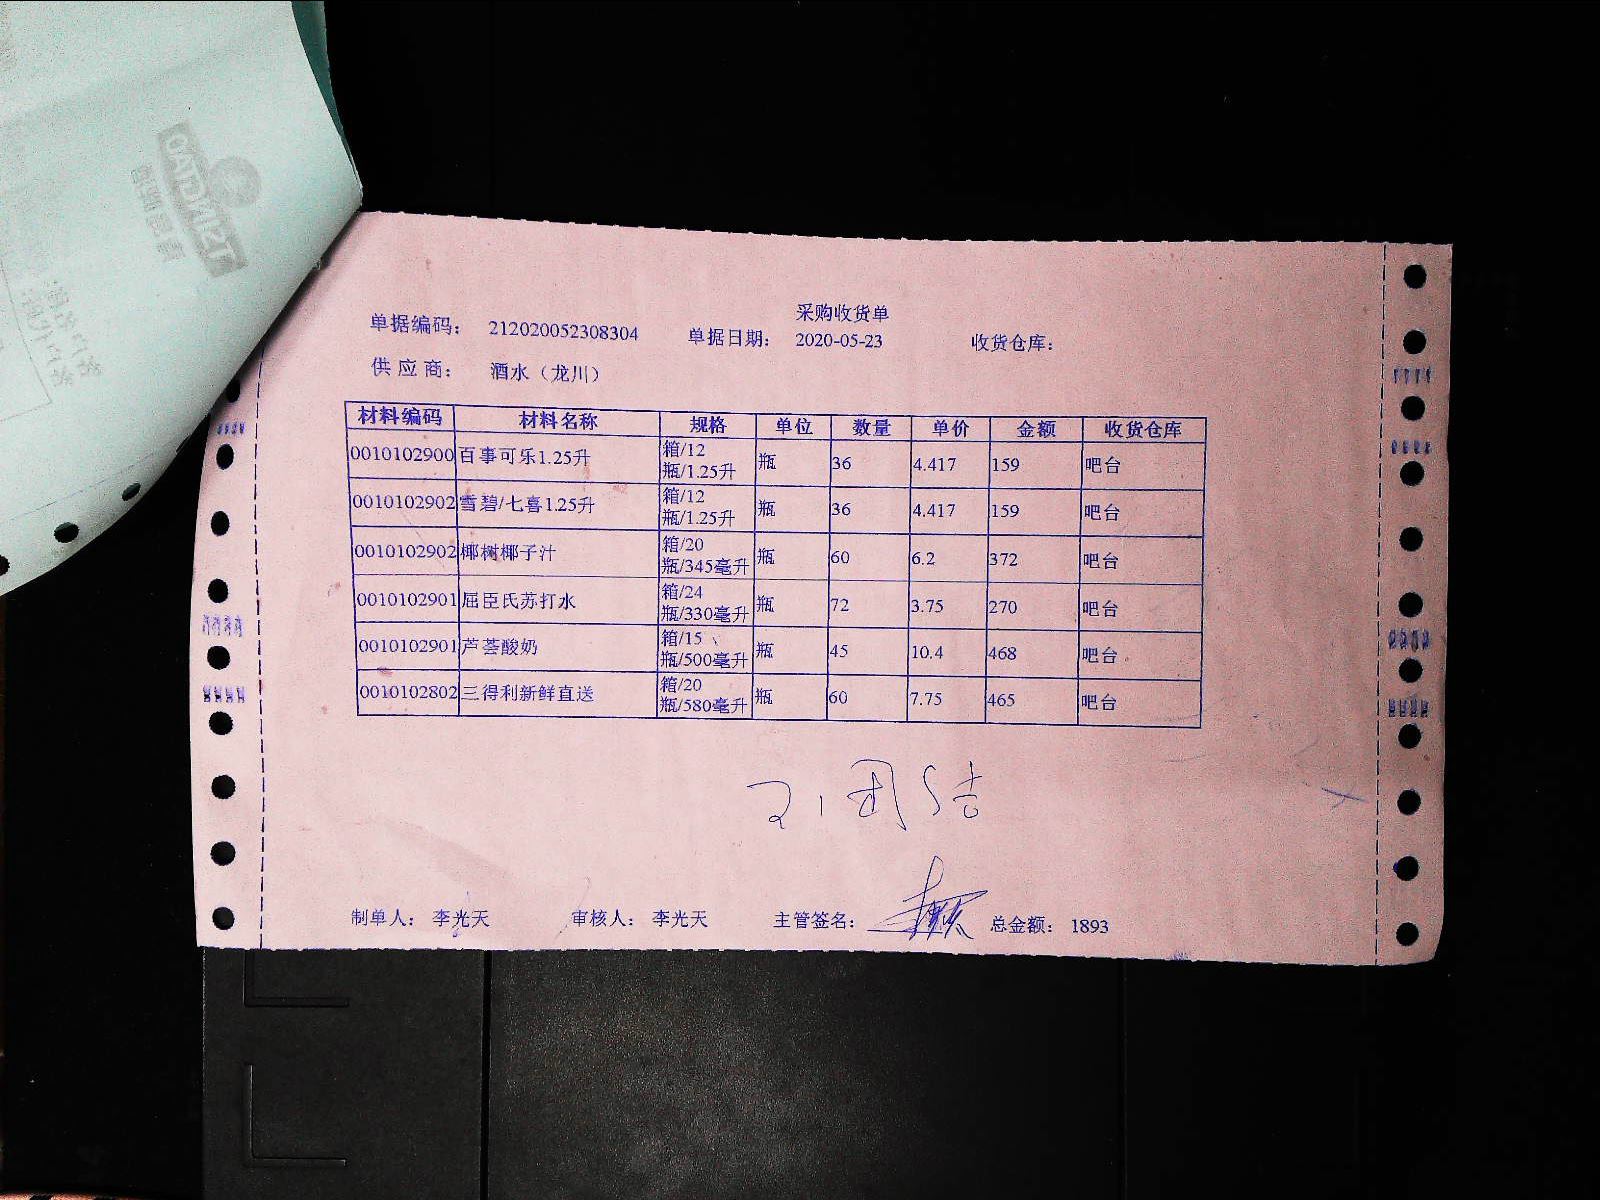 采购收货单
单据编码： 212020052308304 单据日期： 2020-05-23 收货仓库：
供 应 商： 酒水（龙川）
材料编码 材料名称 规格 单位 数量 单价 金额 收货仓库
0010102900 百事可乐1.25升 箱/12瓶/1.25升 瓶 36 4.417 159 吧台
0010102902 雪碧/七喜1.25升 箱/12瓶/1.25升 瓶 36 4.417 159 吧台
0010102902 椰树椰子汁 箱/20瓶/345毫升 瓶 60 6.2 372 吧台
0010102901 屈臣氏苏打水 箱/24瓶/330毫升 瓶 72 3.75 270 吧台
0010102901 芦荟酸奶 箱/15瓶/500毫升 瓶 45 10.4 468 吧台
0010102802 三得利新鲜直送 箱/20瓶/580毫升 瓶 60 7.75 465 吧台
制单人： 李光天 审核人： 李光天 主管签名： 总金额： 1893